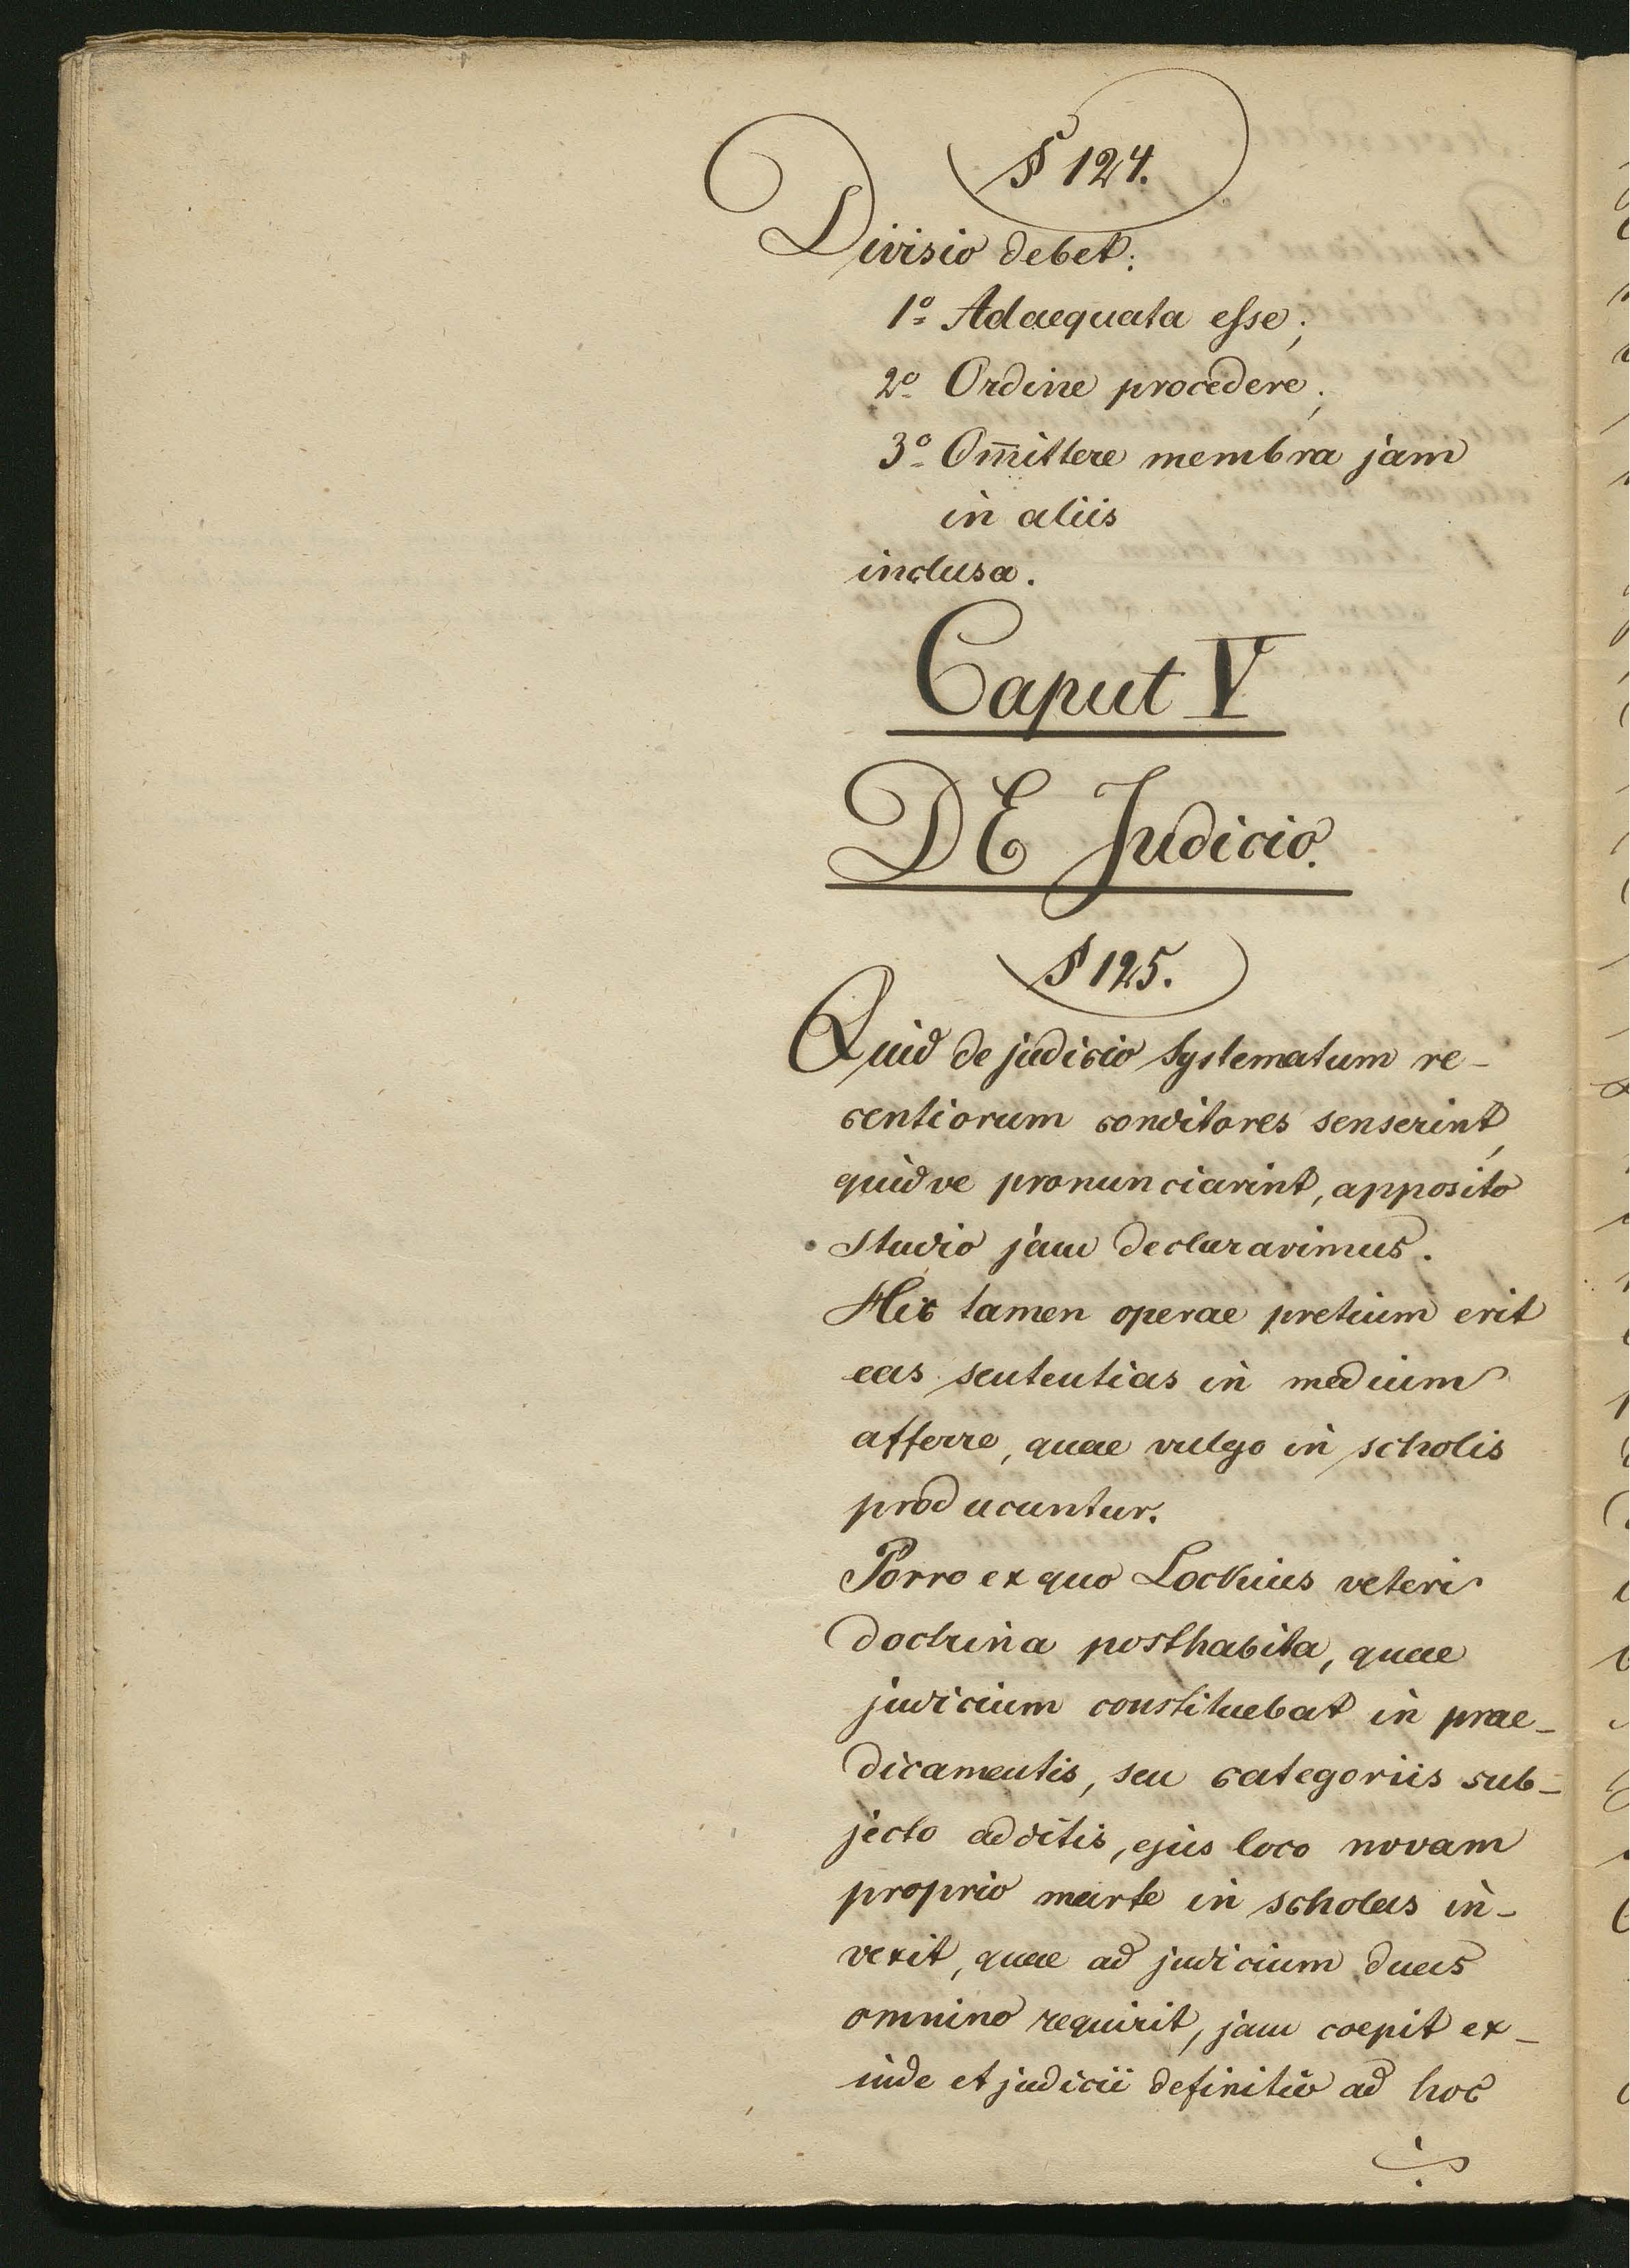 § 124.
Divisio debet:
1º Adaequata esse;
2º Ordine procedere;
3º Om̅ittere membra jam
in aliis
inclusa.
Caput V
DE Judicio.
§ 125.
Quid de judicio systematum re-
centiorum conditores senserint,
quidve pronunciarint, apposito
studio jam declaravimus.
Hic tamen operae pretium erit
eas sententias in medium
afferre, quae vulgo in scholis
producuntur.
Porro ex quo Lockius veteri
doctrina posthabita, quae
judicium constituebat in prae-
dicamentis, seu categoriis sub-
jecto additis, ejus loco novam
proprio marte in scholas in-
vexit, quae ad judicium duas
omnino requirit, jam coepit ex-
inde et judicii definitio ad hoc